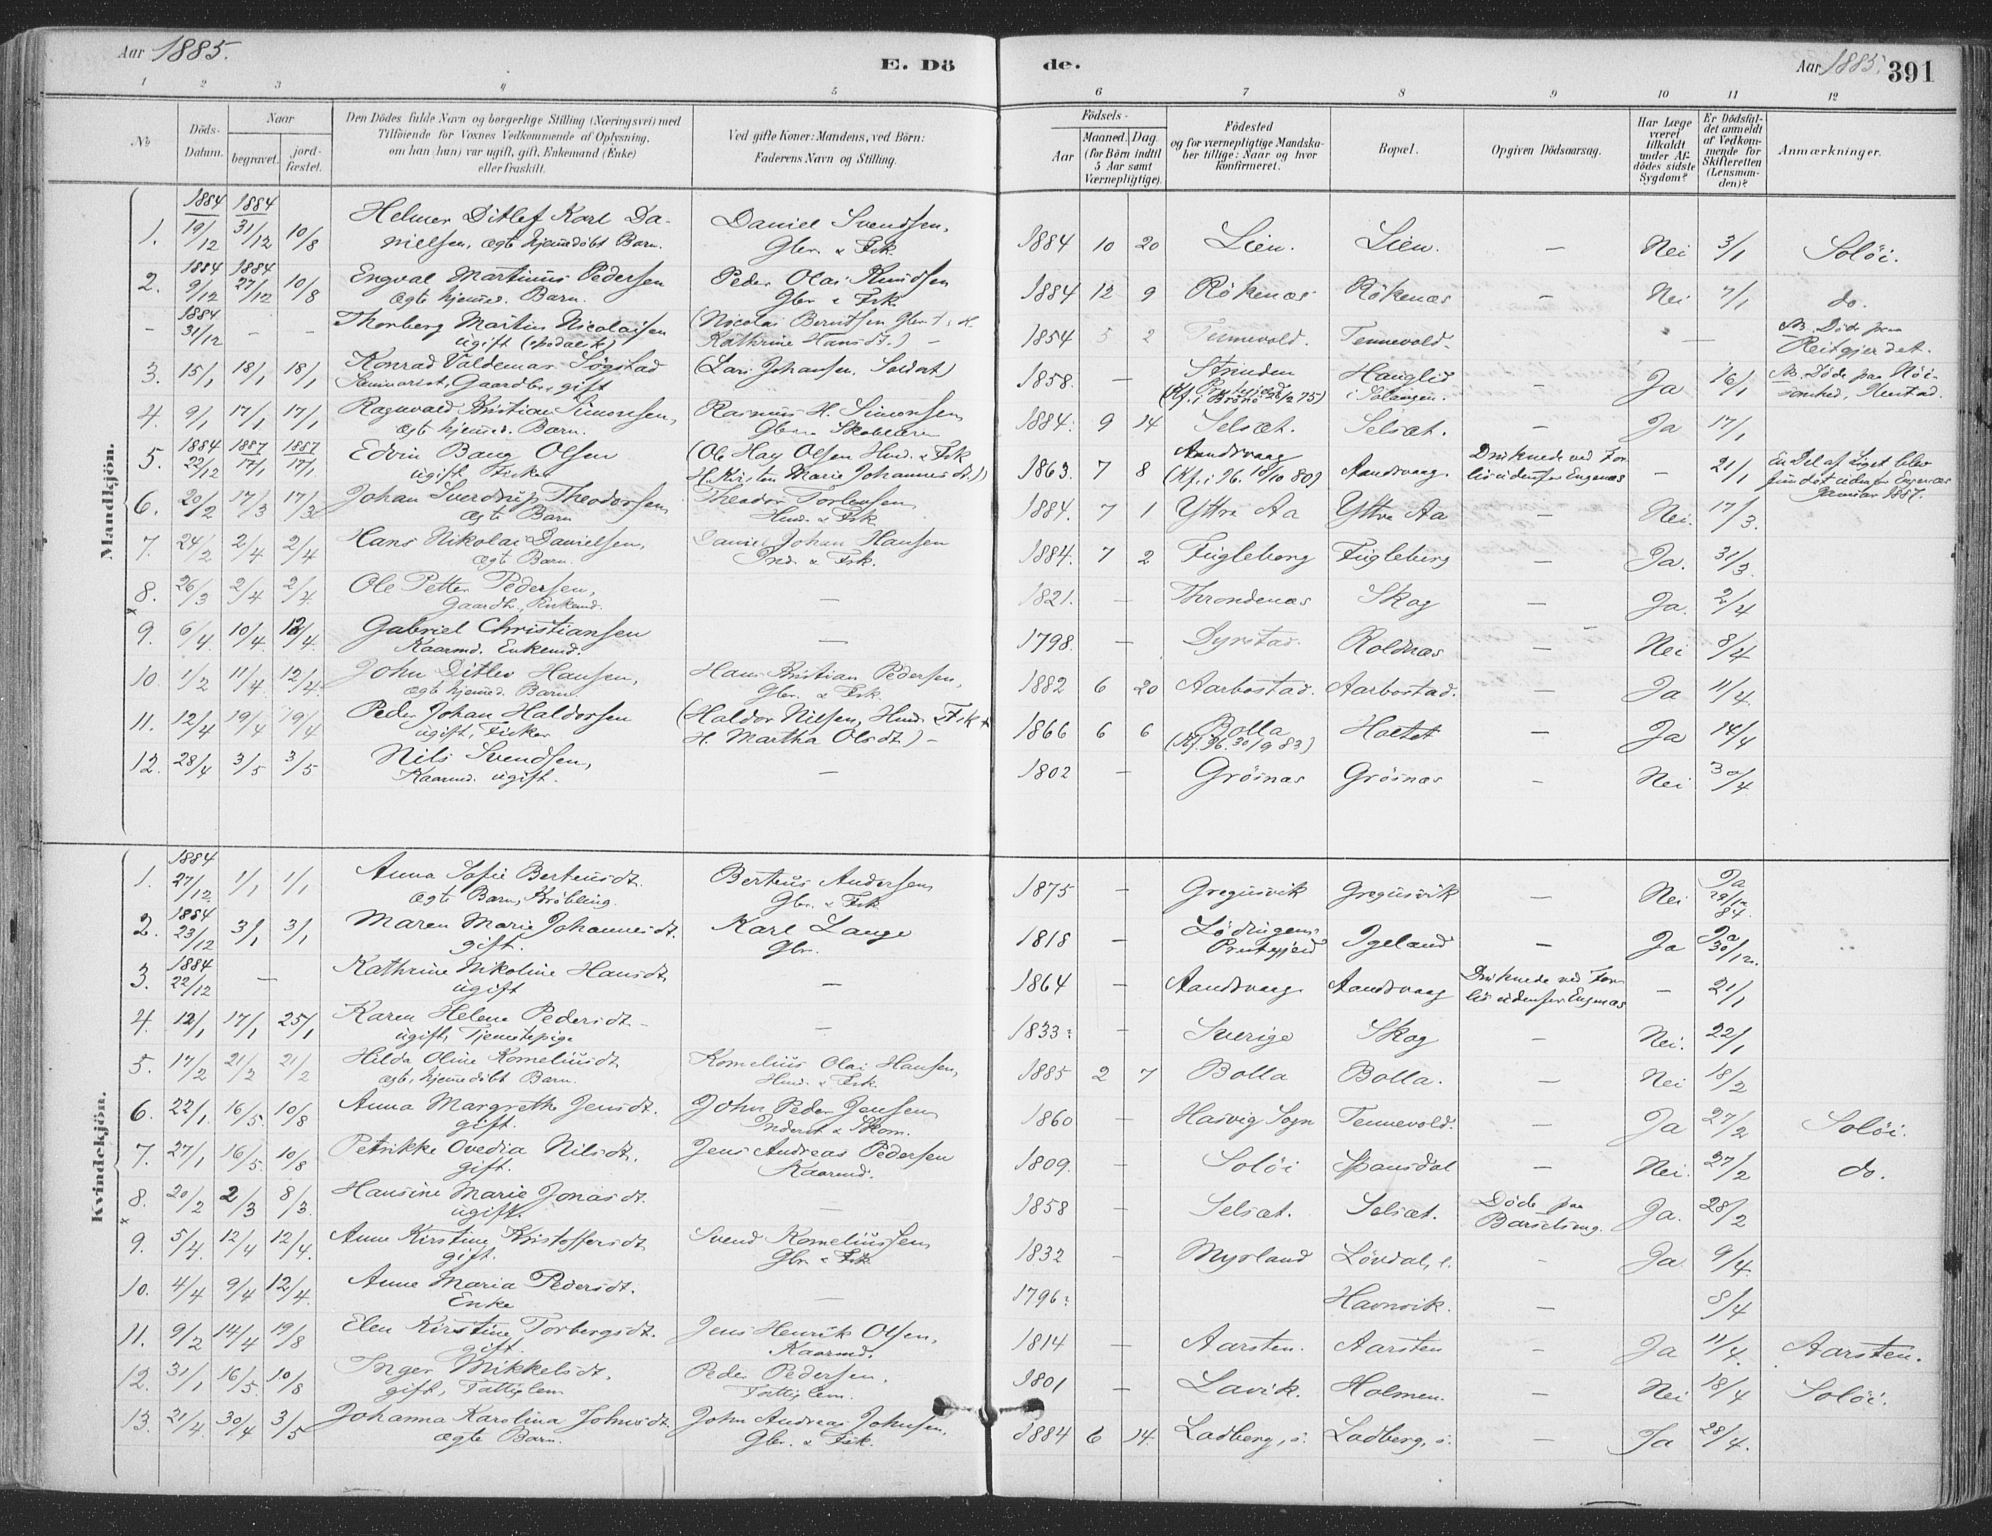 Aar 1885.
E. Dö
de.
Aar 1885.
391
1 2 3 4 5 6 7 8 9 10 11 12
No
Döds-Datum.
Naar
begravet.
jord-fæstet.
Den Dödes fulde Navn og borgerlige Stilling (Næringsvei) med
Tilföiende for Voxnes Vedkommende af Oplysning,
om han (hun) var ugift, gift, Enkemand (Enke)
eller fraskilt.
Ved gifte Koner: Mandens, ved Börn:
Faderens Navn og Stilling.
Födsels-
Aar
Maaned. Dag.
(for Börn indtil
5 Aar samt
Værnepligtige).
Födested
og for værnepligtige Mandska-
ber tillige: Naar og hvor
konfirmeret.
Bopæl.
Opgiven Dödsaarsag.
Har Læge
været
tilkaldt
under Af-
dödes sidste
Sygdom?
Er Dödsfal-
det anmeldt
af Vedkom-
mende for
Skifteretten
(Lensman-
den)?
Anmærkninger.
Mandkjön.
1. 1884 19/12 1884 31/12 10/8 Helmer Ditlef Karl Da-
nielsen, ægte hjemmedöbt Barn. Daniel Svendsen,
Gbr. & Fsk. 1884 10 20 Lien. Lien. — Nei 3/1 Solöi.
2. 1884 9/12 1884 27/12 10/8 Engval Martinus Pedersen
ægte hjemmed. Barn. Peder Olai Knudsen
Gbr. & Fsk. 1884 12 9 Rökenæs Rökenæs — Nei 7/1 do.
— 1884 31/12 — — Thorberg Martin Nicolaisen
ugift (spedalsk) (Nicolai Berntsen Gbr. &
Kathrine Hansdt.) — 1854 5 2 Tennevold. Tennevold. — NB. Döde paa
Reitgjerdet.
3. 15/1 18/1 18/1 Konrad Valdemar Sögstad
Seminarist, Gaardbr., gift (Lars Johansen, Soldat) 1858. — Strinden
Hanglid
i Salangen. Ja 16/1 NB. Döde paa
4. 9/1 17/1 17/1 Ragnvald Kristian Simonsen,
ægte hjemmed. Barn. Rasmus H. Simonsen,
1884. 9 14 Selsæt. Selsæt. — Ja 17/1
5. 1884 22/12 1887 17/1 1887 17/1 Edvin Bang Olsen
ugift Fisker (Ole Hay Olsen Husd. & Fsk
H. Kirsten Marie Johannesdt.) 1863. 7 8 Aandvaag
(Kf. i 96. 10/10 80) Aandvaag. Druknede ved For-
lis udenfor Engenæs — 21/1 En Del af Liget blev
fundet udenfor Engenæs
Januar 1887.
6. 20/2 17/3 17/3 Johan Sverdrup Theodorsen,
ægte Barn Theodor Torbersen,
Husd. & Fsk. 1884. 7 1 Yttre Aa Yttre Aa — Nei. 17/3.
7. 24/2 2/4 2/4 Hans Nikolai Danielsen,
ægte Barn. Daniel Johan Hansen
Ind. & Fsk. 1884. 7 2 Fugleberg Fugleberg — Ja. 31/3
8. 26/3 2/4 2/4 Ole Petter Pedersen,
Gaardbr., Enkemd. — 1821. — Throndenæs Skog — Ja. 2/4
9. 6/4 10/4 12/4 Gabriel Christiansen
Kaarmd. Enkemd. — 1798. — Dyrstad. Roldnæs — Nei 8/4
10. 1/2 11/4 12/4 John Ditlev Hansen,
ægte hjemmd. Barn. Hans Kristian Pedersen,
Gbr. & Fsk. 1882 6 20 Aarbostad. Aarbostad. — Ja 11/4.
11. 12/4 19/4 19/4 Peder Johan Haldorsen
ugift, Fisker (Haldor Nilsen, Husd. & Fsk &
H. Martha Olsdt.) — 1866 6 6 Bolla
(Kf. 96. 30/9 83) Holtet — Ja 14/4
12. 28/4 3/5 3/5 Nils Svendsen,
Kaarmd. ugift. — 1802 — Gröinæs Gröinæs — Nei 30/4.
Kvindekjön.
1. 1884 27/12 1/1 1/1 Anna Sofie Berteusdt.
ægte Barn, Kröbling. Berteus Andersen,
Gbr. & Fsk. 1875 — Gregusvik Gregusvik — Nei Ja
29/12
84.
2. 1884 23/12 3/1 3/1 Maren Marie Johannesdt.
gift. Karl Lange
Gbr. 1818 — Lödingens
Prestegjeld Igeland — Ja Ja
30/12.
3. 1884 22/12 — Kathrine Nikoline Hansdt.
ugift — 1864 — Aandvaag. Aandvaag Druknede ved For-
lis udenfor Engenæs — 21/1
4. 12/1 17/1 25/1 Karen Helene Pedersdt.
ugift, Tjenestepige — 1833: — Sverige Skog — Nei. 22/1
5. 17/2 21/2 21/2 Hilda Oline Korneliusdt.
ægte, hjemmedöbt Barn. Kornelius Olai Hansen,
Husd. & Fsk. 1885 2 7 Bolla Bolla. — Nei 18/2
6. 22/1 16/5 10/8 Anna Margrethe Jensdt.
gift. John Peder Jensen
Inderst & Skom. 1860 — Hasvig Sogn Tennevold. — Ja 27/2 Solöi.
7. 27/1 16/5 10/8 Petrikke Ovedia Nilsdt.
gift. Jens Andreas Pedersen
Kaarmd. 1809. — Solöi Spansdal — Nei. 27/2 do.
8. 20/2 2/3 8/3 Hansine Marie Jonasdt.
ugift. — 1858 — Selsæt. Selsæt. Döde paa
Barselseng. Ja. 28/2
9. 5/4 12/4 12/4 Anne Kirstine Kristoffersdt.
gift. Svend Korneliussen
Gbr. & Fsk. 1832 — Myrland Lövdal, i. — Ja 9/4.
10. 4/4 9/4 12/4 Anne Maria Pedersdt.
Enke — 1796: Havnvik. — 8/4
11. 9/2 14/4 19/8 Elen Kirstine Torbergsdt.
gift. Jens Henrik Olsen,
Kaarmd. 1814 — Aarsten. Aarsten — Ja 11/4. Aarsten.
12. 31/1 16/5 10/8 Inger Mikkelsdt.
gift, Fattiglem Peder Pedersen,
Fattiglem. 1801 — Lavik. Holmen. — Nei 18/4 Solöi.
13. 21/4 30/4 3/5 Johanna Karolina Johnsdt.
ægte Barn. John Andreas Johnsen,
Gbr. & Fsk. 1884 6 14. Ladberg, i. Ladberg, i. — Ja 28/4.